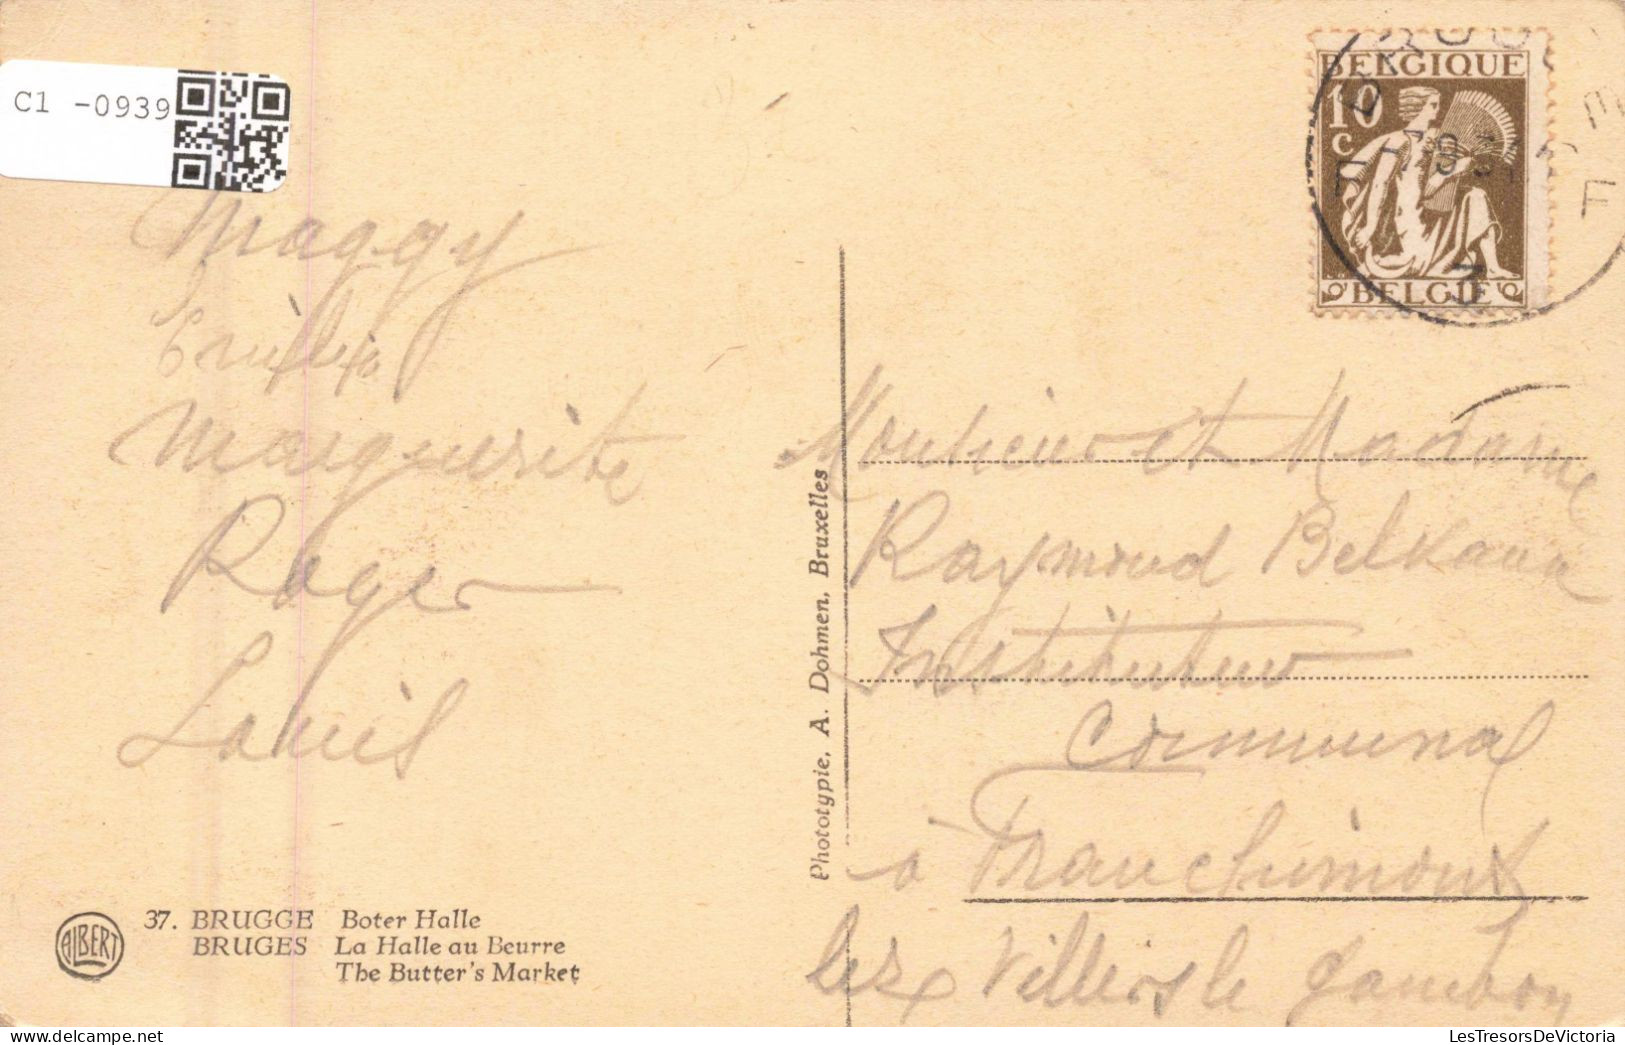 C1 -0939
BELGIQUE
10
c
BELGIË
Maggy
Marguerite
Roger
Louis
Phototypie, A. Dohmen, Bruxelles
Monsieur et Madame
Raymond
Instituteur
Communal
à Franchimont
lez Villers le Gambon
ALBERT
37. BRUGGE Boter Halle
BRUGES La Halle au Beurre
The Butter's Market
LesTresorsDeVictoria.com